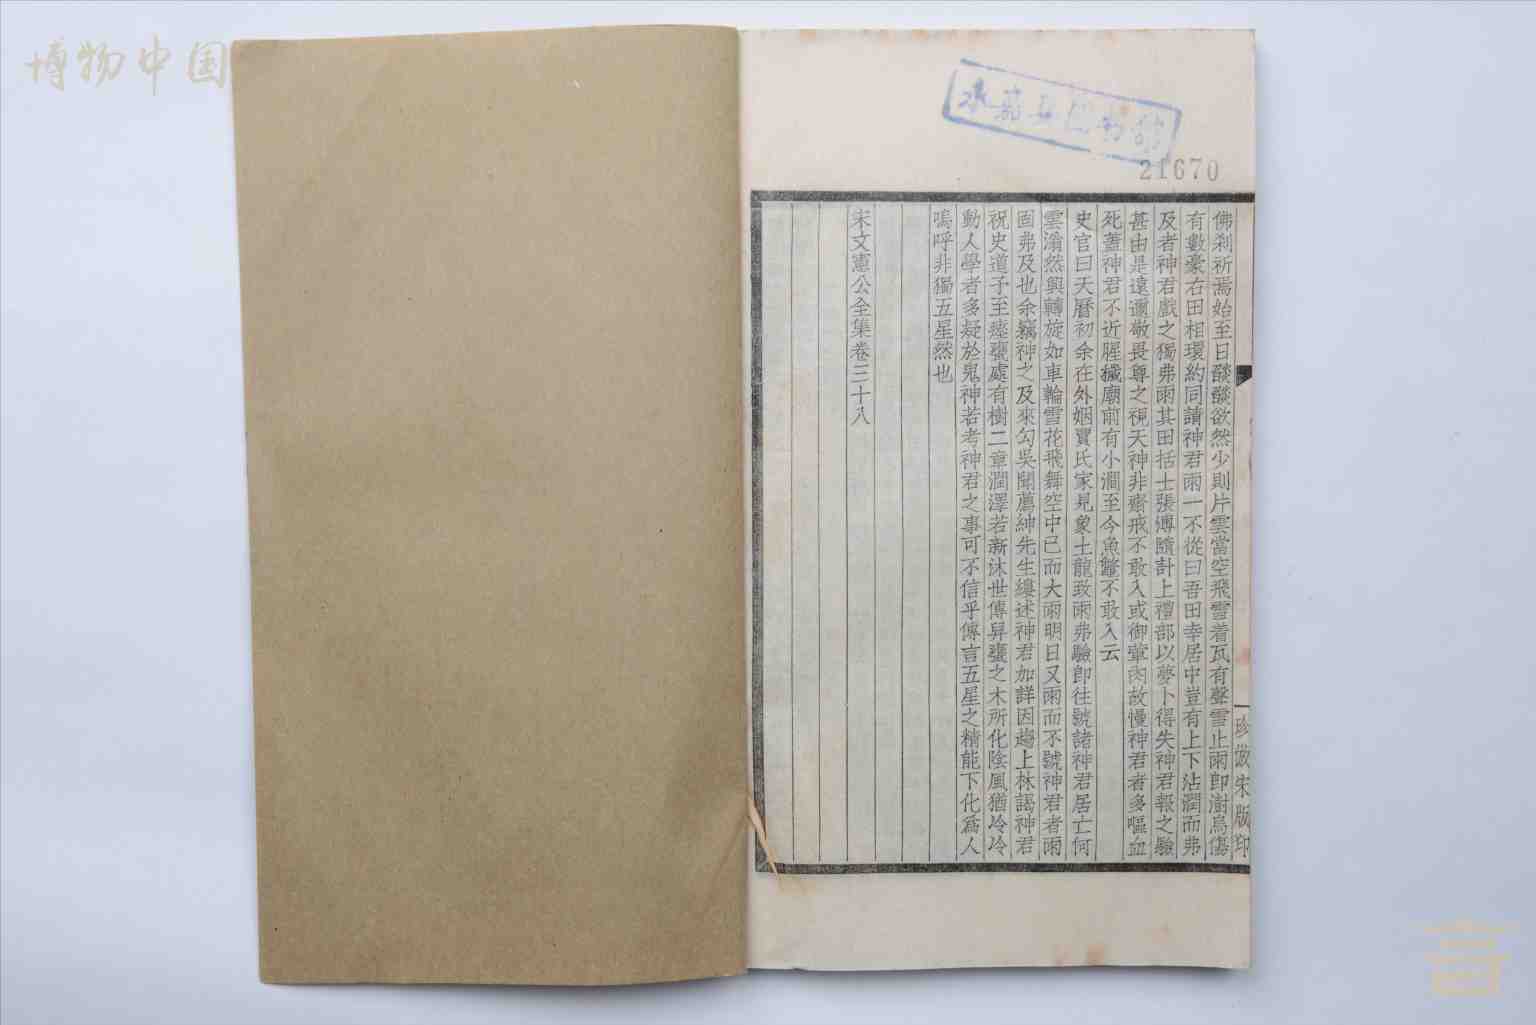 博物中国
永嘉县博物馆
21670
佛剎祈焉始至日燄燄欲然少則片雲當空飛雪着瓦有聲雪止雨即澍烏傷
有數豪右田相環約同請神君雨一不從曰吾田幸居中豈有上下沾潤而弗
及者神君戲之獨弗雨其田括士張溥隨計上禮部以夢卜得失神君報之驗
甚由是遠邇敬畏尊之視天神非齋戒不敢入或御葷肉故慢神君者多嘔血
死蓋神君不近腥穢廟前有小澗至今魚鼈不敢入云
史官曰天曆初余在外姻賈氏家見象土龍致雨弗驗即往號諸神君居亡何
雲滃然興轉旋如車輪雪花飛舞空中已而大雨明日又雨而不號神君者雨
固弗及也余竊神之及來勾吳聞薦紳先生縷述神君加詳因趨上林謁神君
祝史道予至瘞甕處有樹二章潤澤若新沐世傳舁甕之木所化陰風猶冷冷
動人學者多疑於鬼神若考神君之事可不信乎傳言五星之精能下化爲人
嗚呼非獨五星然也
宋文憲公全集卷三十八
珍倣宋版印